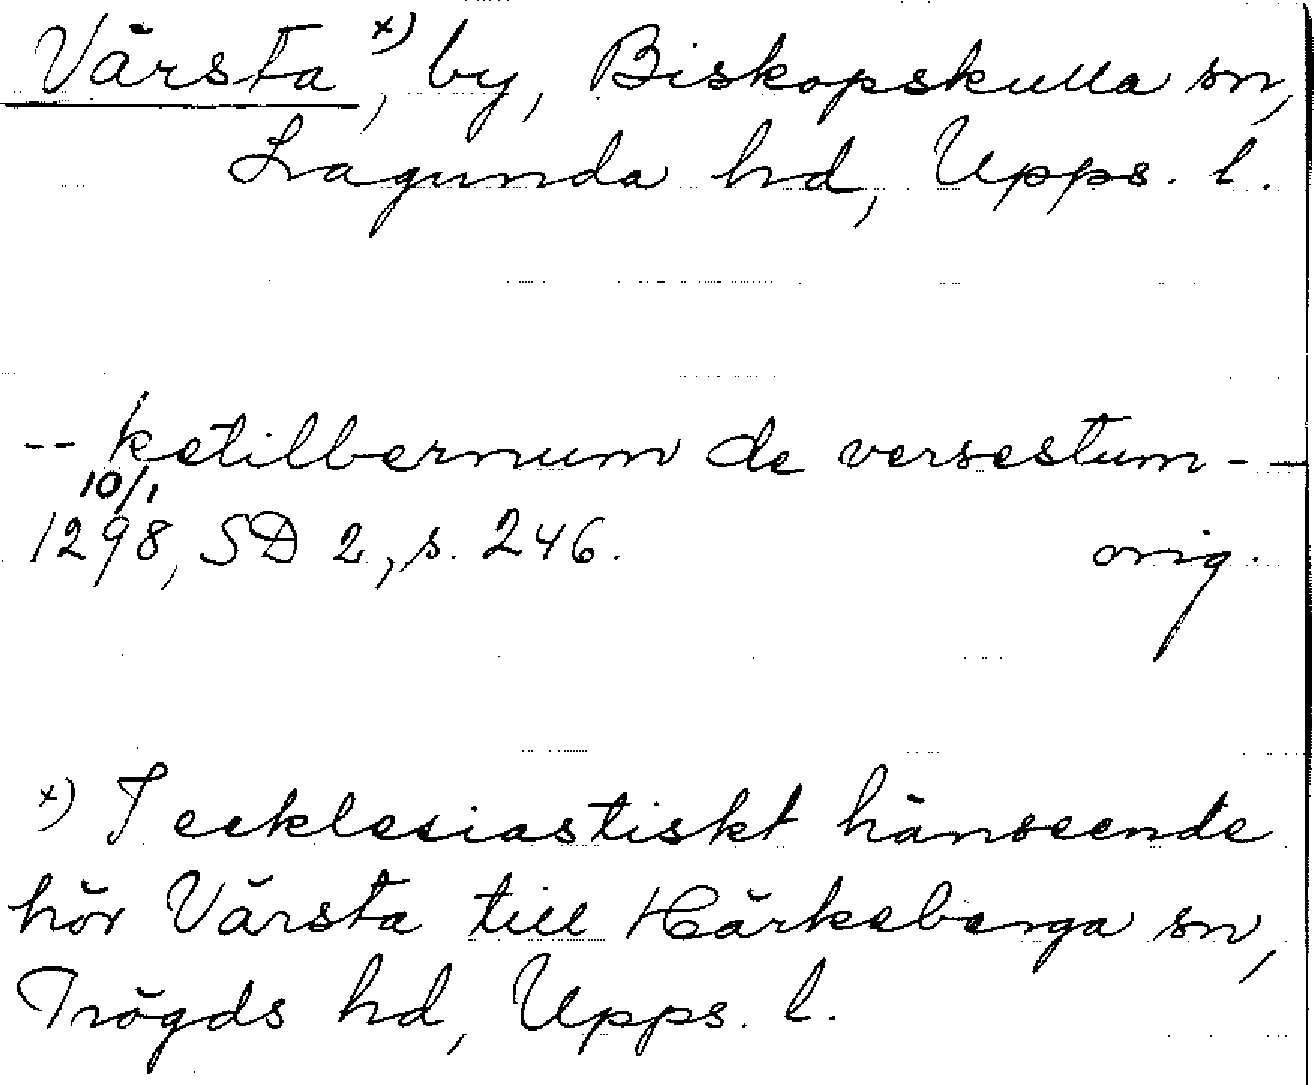 Värsta x), by, Biskopskulla sn,
Lagunda hd, Upps. l.
-- ketilbernum de versestum --
10/1
1298, SD 2, s. 246. orig.
x) I ecklesiastiskt hänseende
hör Värsta till Härkeberga sn,
Trögds hd, Upps. l.